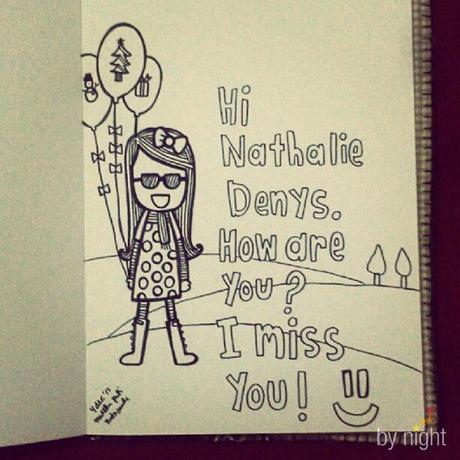 Hi
Nathalie
Denys.
How are
you?
I miss
you!
by night